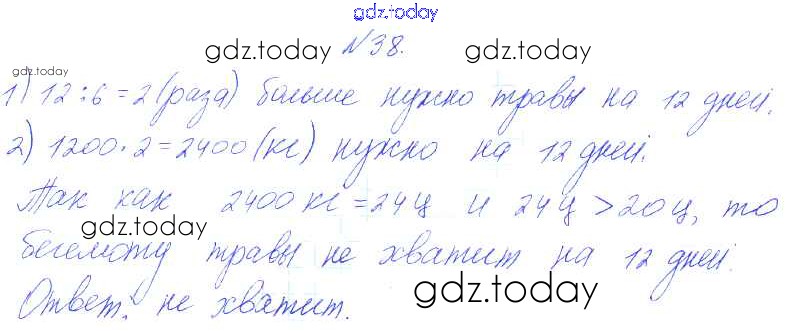 gdz.today
gdz.today №38. gdz.today
gdz.today
1) 12:6=2 (раза) больше нужно травы на 12 дней.
2) 1200·2=2400 (кг) нужно на 12 дней.
Так как 2400 кг = 24 ц и 24 ц > 20 ц, то
gdz.today
бегемоту травы не хватит на 12 дней.
Ответ: не хватит.
gdz.today